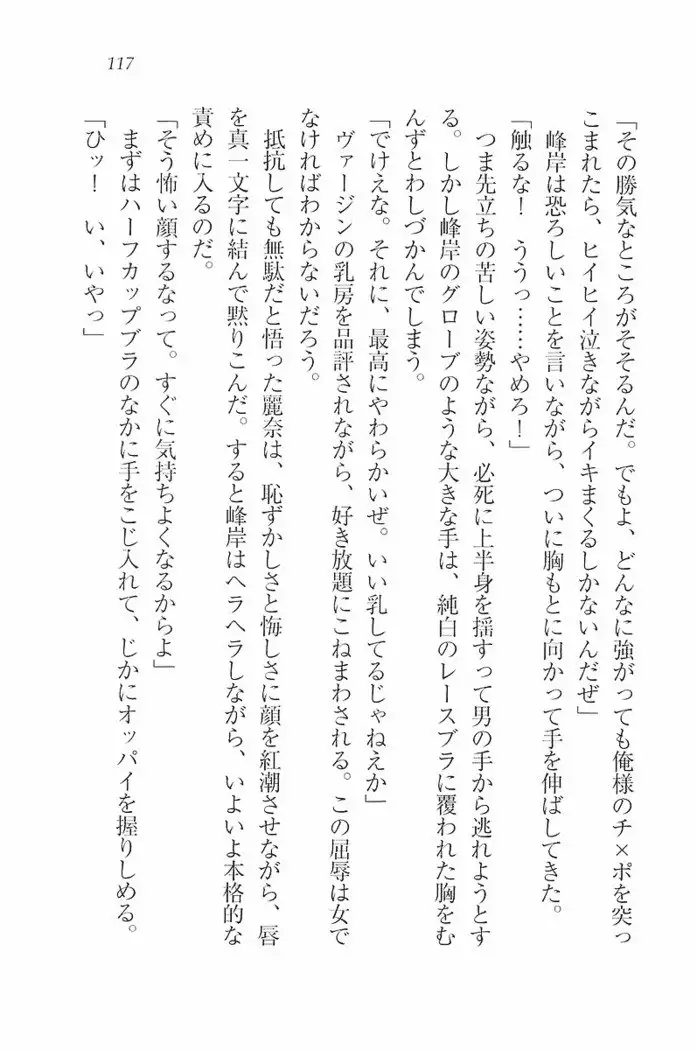 117
「その勝気なところがそそるんだ。でもよ、どんなに強がっても俺様のチ×ポを突っ
こまれたら、ヒイヒイ泣きながらイキまくるしかないんだぜ」
峰岸は恐ろしいことを言いながら、ついに胸もとに向かって手を伸ばしてきた。
「触るな！　ううっ……やめろ！」
つま先立ちの苦しい姿勢ながら、必死に上半身を揺すって男の手から逃れようとす
る。しかし峰岸のグローブのような大きな手は、純白のレースブラに覆われた胸をむ
んずとわしづかんでしまう。
「でけえな。それに、最高にやわらかいぜ。いい乳してるじゃねえか」
ヴァージンの乳房を品評されながら、好き放題にこねまわされる。この屈辱は女で
なければわからないだろう。
抵抗しても無駄だと悟った麗奈は、恥ずかしさと悔しさに顔を紅潮させながら、唇
を真一文字に結んで黙りこんだ。すると峰岸はヘラヘラしながら、いよいよ本格的な
責めに入るのだ。
「そう怖い顔するなって。すぐに気持ちよくなるからよ」
まずはハーフカップブラのなかに手をこじ入れて、じかにオッパイを握りしめる。
「ひッ！　い、いやっ」